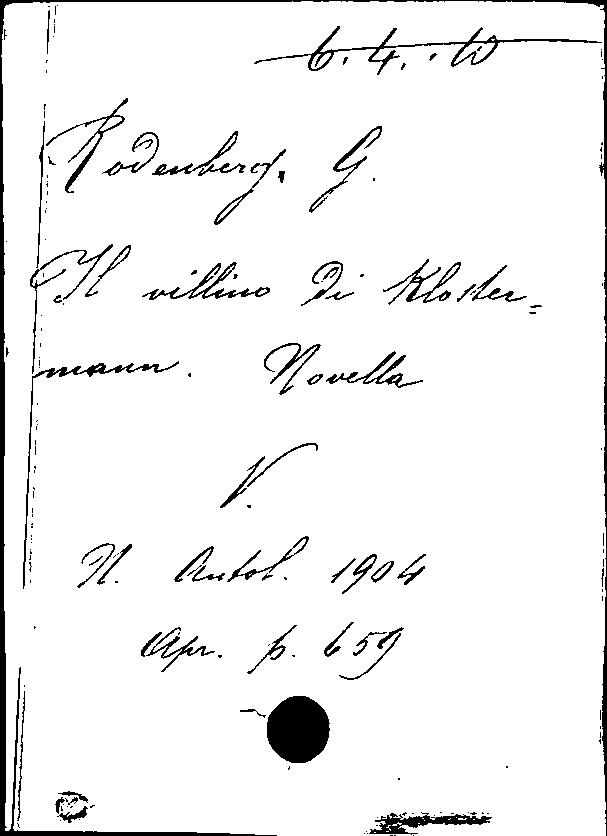 6.4..10
Rodenberg, G.
Il villino di Kloster=
mann. Novella
V.
N. Antol. 1904
Apr. p. 659